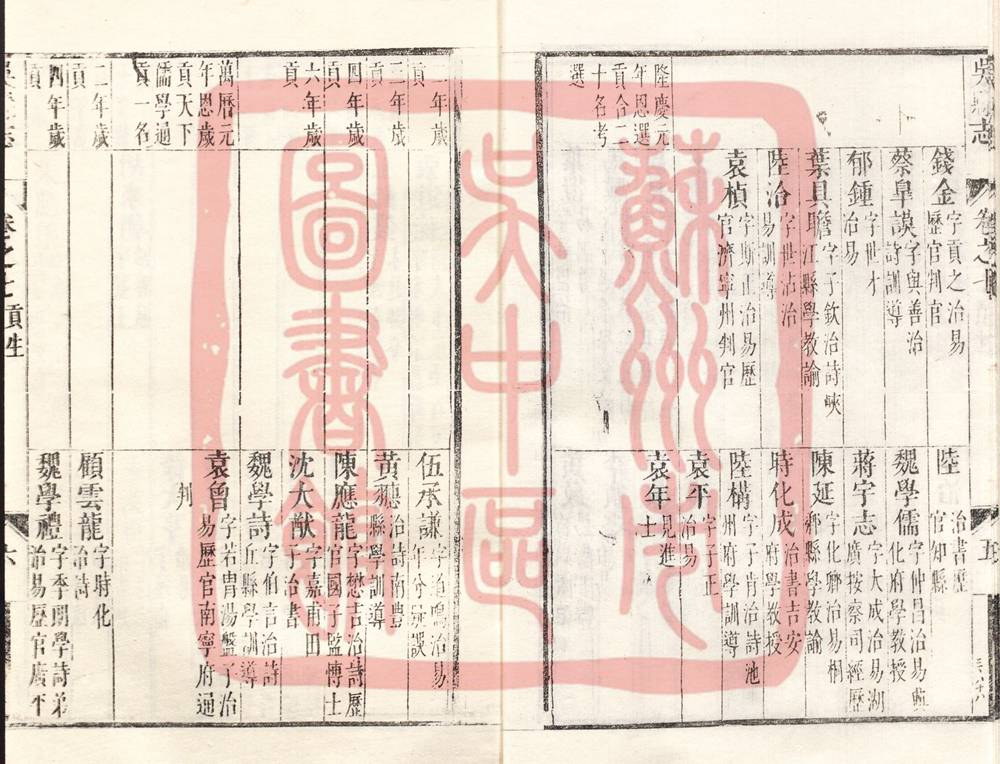 吳縣志
卷之七
五
錢金字貢之治易歷官判官
蔡阜謨字與善治詩訓導
郁鍾字世才治易
葉具瞻字子欽治詩峽江縣學教諭
陸治字世沾治易訓導
袁楨字斯正治易歷官濟寧州判官
隆慶元年恩選貢合二十名考選
陸 治書歷官知縣
魏學儒字仲昌治易 化府學教授
蔣字志字大成治易湖廣按察司經歷
陳延 字化卿治易桐鄉縣學教諭
時化成 治書吉安府學教授
陸構字子肯治詩池州府學訓導
袁平字子正治易
袁年見進士
二年歲貢
三年歲貢
四年歲貢
六年歲貢
萬曆元年恩歲貢天下儒學通貢一名
二年歲貢
四年歲貢
伍承謙字道鳴治易
黃 治詩南豐縣學訓導
陳應龍字懋吉治詩歷官國子監博士
沈大猷字嘉甫田子治書
魏學詩字伯言治詩 丘縣學訓導
袁曾字若冑湯盤子治易歷官南寧府通判
顧雲龍字時化治詩
魏學禮字季朗學詩弟治易歷官廣平
卷之七 貢生
六
蘇州市吳中區圖書館